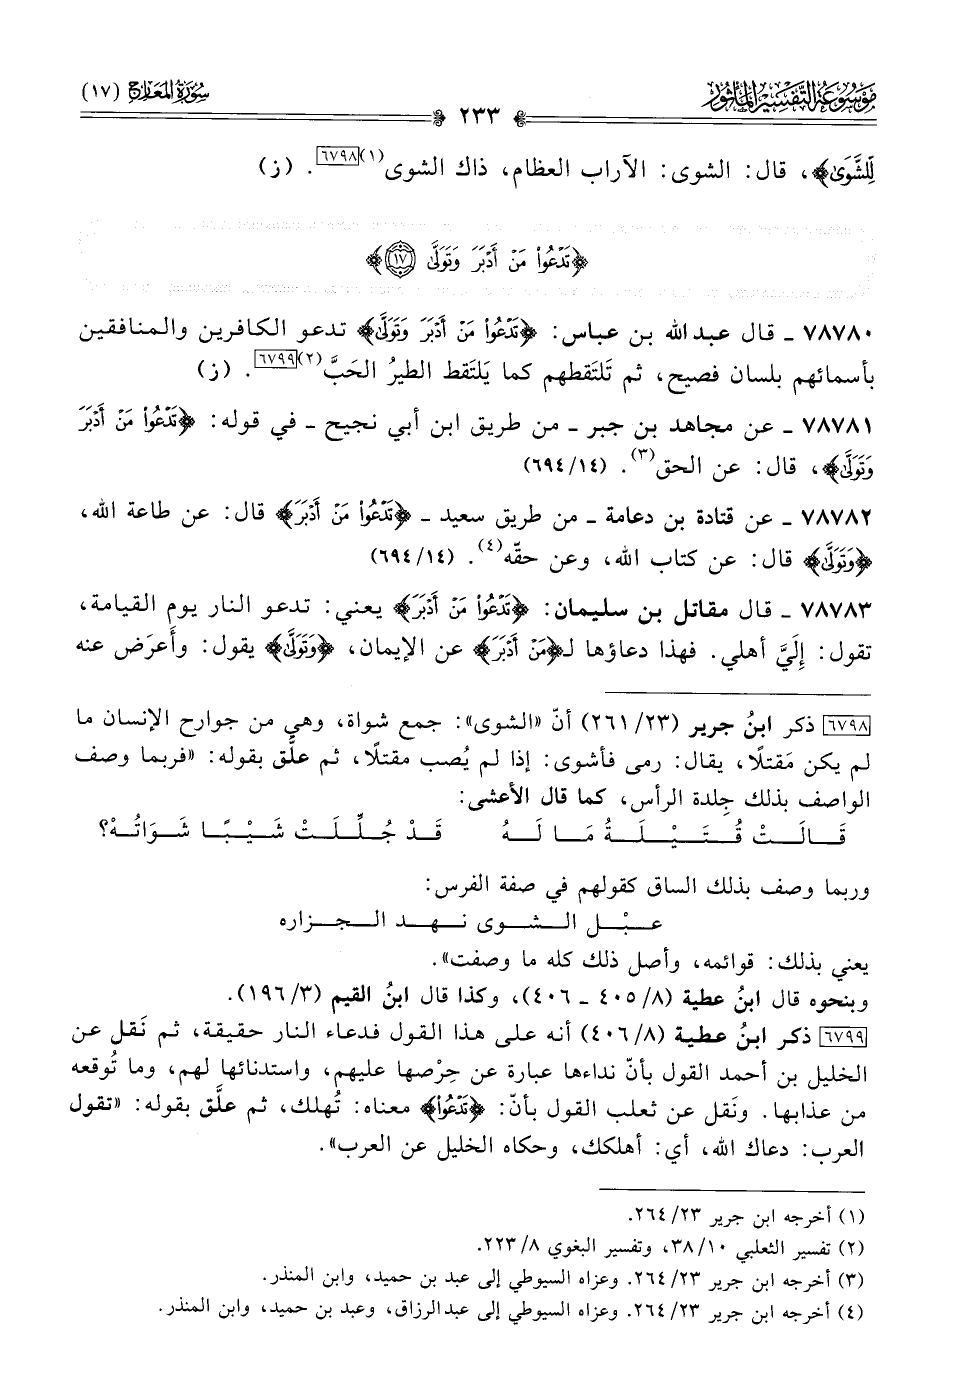 موسوعة التفسير المأثور
سورة المعارج (١٧)
٢٣٣
لِّلشَّوَىٰ﴾، قال: الشوى: الآراب العظام، ذاك الشوى(١)[٦٧٩٨]. (ز)
﴿تَدْعُوا۟ مَنْ أَدْبَرَ وَتَوَلَّىٰ ١٧﴾
٧٨٧٨٠ ـ قال عبد الله بن عباس: ﴿تَدْعُوا۟ مَنْ أَدْبَرَ وَتَوَلَّىٰ﴾ تدعو الكافرين والمنافقين
بأسمائهم بلسان فصيح، ثم تَلتَقطهم كما يَلتَقط الطيرُ الحَبَّ(٢)[٦٧٩٩]. (ز)
٧٨٧٨١ ـ عن مجاهد بن جبر ـ من طريق ابن أبي نجيح ـ في قوله: ﴿تَدْعُوا۟ مَنْ أَدْبَرَ
وَتَوَلَّىٰ﴾، قال: عن الحق(٣). (٦٩٤/١٤)
٧٨٧٨٢ ـ عن قتادة بن دعامة ـ من طريق سعيد ـ ﴿تَدْعُوا۟ مَنْ أَدْبَرَ﴾ قال: عن طاعة الله،
﴿وَتَوَلَّىٰ﴾ قال: عن كتاب الله، وعن حقّه(٤). (٦٩٤/١٤)
٧٨٧٨٣ ـ قال مقاتل بن سليمان: ﴿تَدْعُوا۟ مَنْ أَدْبَرَ﴾ يعني: تدعو النار يوم القيامة،
تقول: إِلَيَّ أهلي. فهذا دعاؤها لـ﴿مَنْ أَدْبَرَ﴾ عن الإيمان، ﴿وَتَوَلَّىٰ﴾ يقول: وأَعرَض عنه
[٦٧٩٨] ذكر ابنُ جرير (٢٦١/٢٣) أنّ «الشوى»: جمع شواة، وهي من جوارح الإنسان ما
لم يكن مَقتلًا، يقال: رمى فأشوى: إذا لم يُصب مقتلًا، ثم علَّق بقوله: «فربما وصف
الواصف بذلك جِلدة الرأس، كما قال الأعشى:
قَالَتْ قُتَيْلَةُ مَا لَهُ قَدْ جُلِّلَتْ شَيْبًا شَوَاتُهْ؟
وربما وصف بذلك الساق كقولهم في صفة الفرس:
عبْل الشوى نهد الجزاره
يعني بذلك: قوائمه، وأصل ذلك كله ما وصفت».
وبنحوه قال ابنُ عطية (٨/ ٤٠٥ ـ ٤٠٦)، وكذا قال ابنُ القيم (١٩٦/٣).
[٦٧٩٩] ذكر ابنُ عطية (٤٠٦/٨) أنه على هذا القول فدعاء النار حقيقة، ثم نَقل عن
الخليل بن أحمد القول بأنّ نداءها عبارة عن حِرْصها عليهم، واستدنائها لهم، وما تُوقعه
من عذابها. ونَقل عن ثعلب القول بأنّ: ﴿تَدْعُوا۟﴾ معناه: تُهلك، ثم علَّق بقوله: «تقول
العرب: دعاك الله، أي: أهلكك، وحكاه الخليل عن العرب».
(١) أخرجه ابن جرير ٢٦٤/٢٣.
(٢) تفسير الثعلبي ٣٨/١٠، وتفسير البغوي ٢٢٣/٨.
(٣) أخرجه ابن جرير ٢٦٤/٢٣. وعزاه السيوطي إلى عبد بن حميد، وابن المنذر.
(٤) أخرجه ابن جرير ٢٦٤/٢٣. وعزاه السيوطي إلى عبد الرزاق، وعبد بن حميد، وابن المنذر.